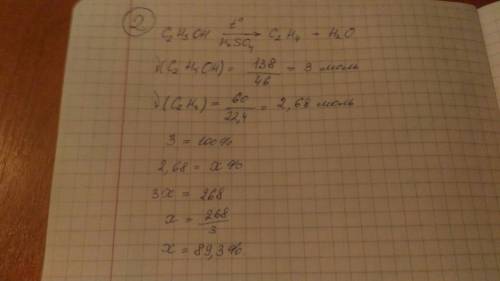 2
C₂H₅OH —t°/H₂SO₄→ C₂H₄ + H₂O
ν(C₂H₅OH) = 138/46 = 3 моль
ν(C₂H₄) = 60/22,4 = 2,68 моль
3 = 100%
2,68 = x%
3x = 268
x = 268/3
x = 89,3%